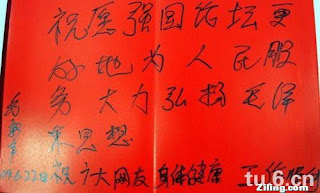 祝愿强国论坛更
好地为人民服
务大力弘扬毛泽
东思想
6.22日祝广大网友身体健康 工作顺利
tu.6.cn
Ziling.com